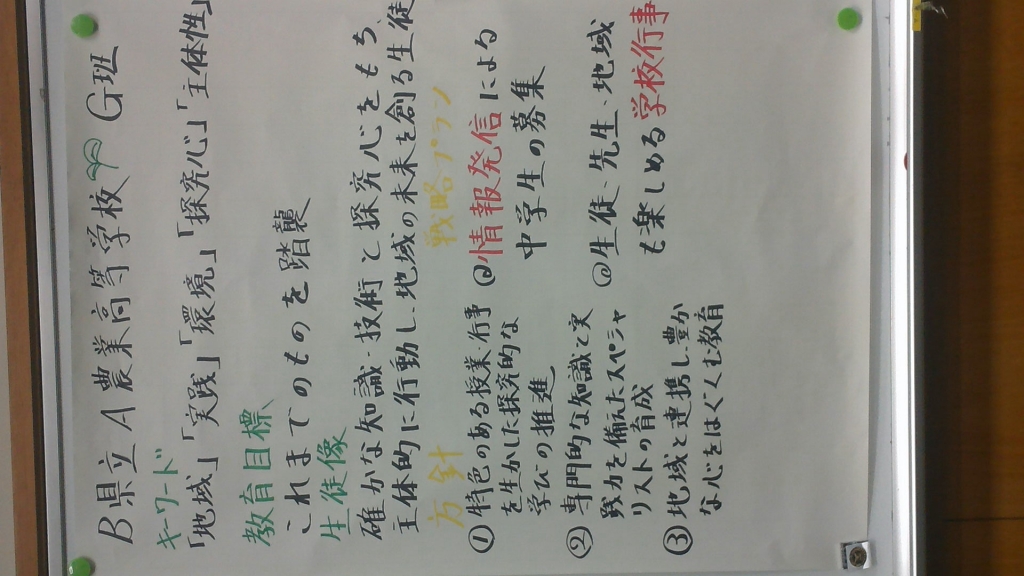 B県立A農業高等学校 G班
キーワード
「地域」「実践」「環境」「探究心」「主体性」
教育目標
これまでのものを踏襲
生徒像
確かな知識・技術と探究心をもち、
主体的に行動し、地域の未来を創る生徒
方針
①特色のある授業・行事
を生かした探究的な
学びの推進
②専門的な知識と実
践力を備えたスペシャ
リストの育成
③地域と連携し、豊か
な心をはぐくむ教育
戦略プラン
◎情報発信による
中学生の募集
◎生徒、先生、地域
も楽しめる学校行事